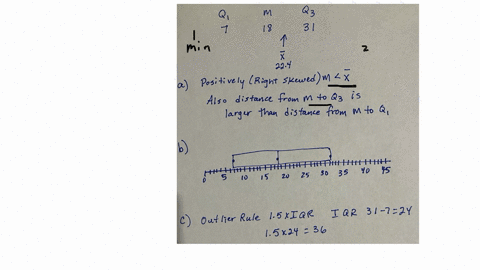 Q₁ M Q₃
1 7 18 31
min 2
↑
x̄
22.4
a) Positively (Right skewed) M < x̄
Also distance from M to Q₃ is
larger than distance from M to Q₁
b)
0 5 10 15 20 25 30 35 40 45
c) Outlier Rule 1.5xIQR IQR 31-7=24
1.5x24=36